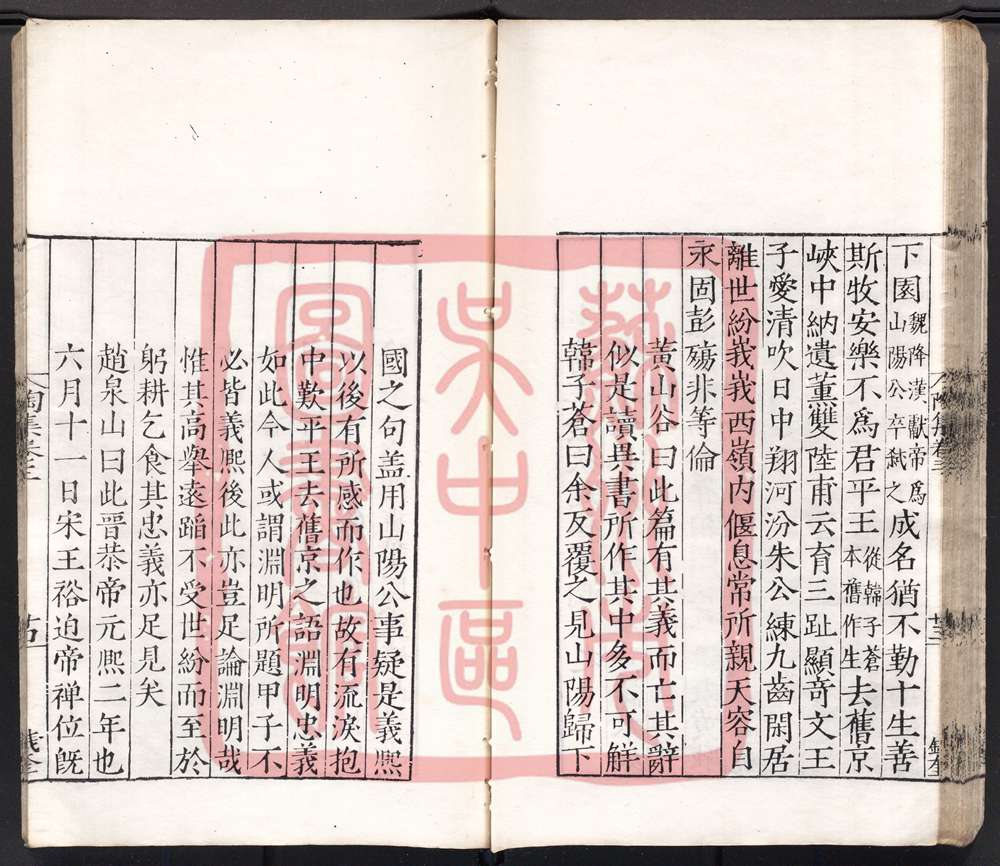 下園魏降漢獻帝爲山陽公卒弑之成名猶不勤卜生善
斯牧安樂不爲君平王從韓子蒼本舊作生去舊京
峽中納遺薰雙陸甫云育三趾顯竒文王
子愛清吹日中翔河汾朱公練九齒閑居
離世紛峩峩西嶺内偃息常所親天容自
永固彭殤非等倫
黃山谷曰此篇有其義而亡其辭
似是讀異書所作其中多不可觧
韓子蒼曰余反覆之見山陽歸下
國之句盖用山陽公事疑是義熙
以後有所感而作也故有流淚抱
中歎平王去舊京之語淵明忠義
如此今人或謂淵明所題甲子不
必皆義熙後此亦豈足論淵明哉
惟其高舉遠蹈不受世紛而至於
躬耕乞食其忠義亦足見矣
趙泉山曰此晉恭帝元熙二年也
六月十一日宋王裕迫帝禅位旣
陶集卷三
廿三
陶集卷三
廿四
蘇州市
吳中區
圖書館